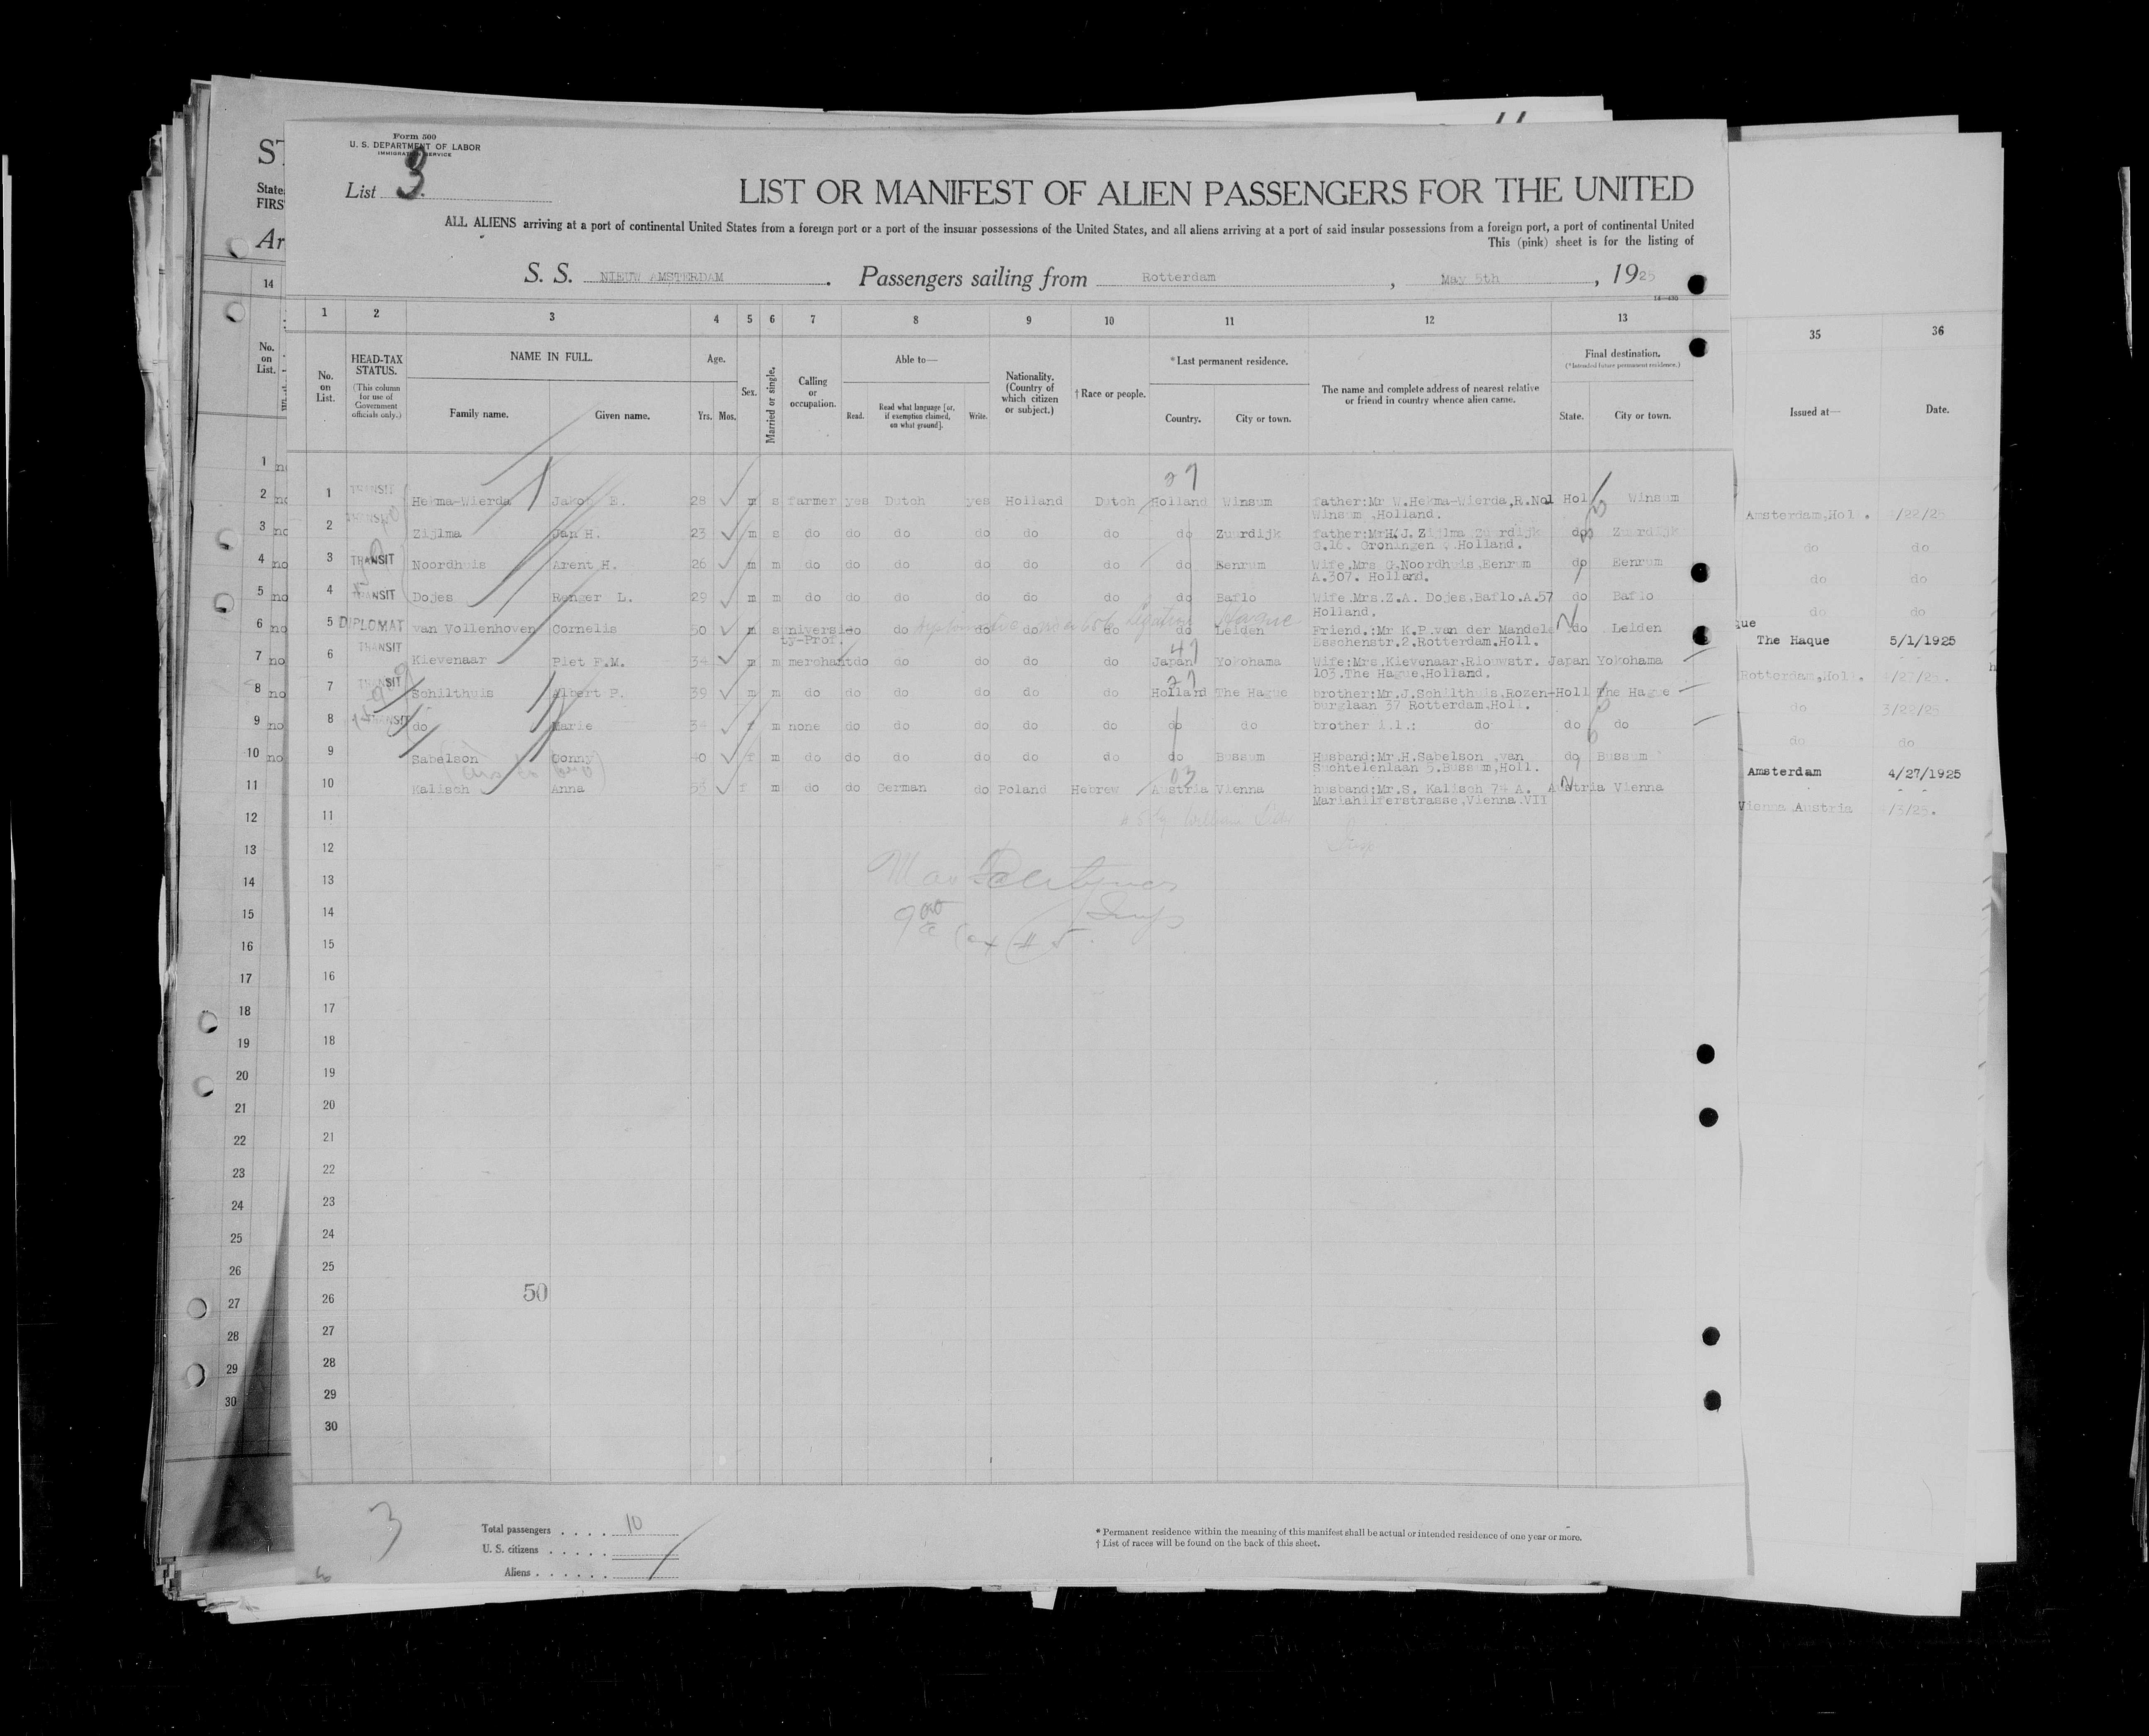 Form 500
U. S. DEPARTMENT OF LABOR
IMMIGRATION SERVICE
List 3
LIST OR MANIFEST OF ALIEN PASSENGERS FOR THE UNITED
ALL ALIENS arriving at a port of continental United States from a foreign port or a port of the insular possessions of the United States, and all aliens arriving at a port of said insular possessions from a foreign port, a port of continental United
This (pink) sheet is for the listing of
S. S. NIEUW AMSTERDAM. Passengers sailing from Rotterdam, May 5th, 1925
14—430
1 2 3 4 5 6 7 8 9 10 11 12 13
No. on List.
HEAD-TAX STATUS.
(This column for use of Government officials only.)
NAME IN FULL.
Family name. Given name.
Age.
Yrs. Mos.
Sex.
Married or single.
Calling or occupation.
Able to—
Read. Read what language [or, if exemption claimed, on what ground]. Write.
Nationality. (Country of which citizen or subject.)
† Race or people.
* Last permanent residence.
Country. City or town.
The name and complete address of nearest relative or friend in country whence alien came.
Final destination.
(* Intended future permanent residence.)
State. City or town.
27
1 TRANSIT Hekma-Wierda Jakob E. 28 m s farmer yes Dutch yes Holland Dutch Holland Winsum father:Mr W.Hekma-Wierda,R.No1 Hol Winsum
Winsum ,Holland.
2 TRANSIT Zijlma Jan H. 23 m s do do do do do do do Zuurdijk father:MrH.J. Zijlma Zuurdijk do Zuurdijk
G.16. Groningen , Holland.
3 TRANSIT Noordhuis Arent H. 26 m m do do do do do do do Eenrum Wife.Mrs G.Noordhuis,Eenrum do Eenrum
A.307. Holland.
4 TRANSIT Dojes Renger L. 29 m m do do do do do do do Baflo Wife.Mrs.Z.A. Dojes,Baflo.A.57 do Baflo
Holland.
5 DIPLOMAT van Vollenhoven Cornelis 50 m s universi do do do do do do Leiden Friend.:Mr K.P.van der Mandele do Leiden
ty-Prof. Esschenstr.2.Rotterdam.Holl.
Hague
47
6 TRANSIT Kievenaar Piet F.M. 34 m m merchant do do do do do Japan Yokohama Wife:Mrs.Kievenaar.Riouwstr. Japan Yokohama
103.The Hague,Holland.
27
7 TRANSIT Schilthuis Albert P. 39 m m do do do do do do Holland The Hague brother:Mr.J.Schilthuis,Rozen- Holl The Hague
burglaan 37 Rotterdam,Holl.
8 TRANSIT do Marie 34 f m none do do do do do do do brother i.l.: do do do
9 Sabelson Conny 40 f m do do do do do do do Bussum Husband:Mr.H.Sabelson ,van do Bussum
Suchtelenlaan 5.Bussum,Holl.
03
10 Kalisch Anna 53 f m do do German do Poland Hebrew Austria Vienna husband:Mr.S. Kalisch 74 A. Austria Vienna
Mariahilferstrasse,Vienna.VII
11
12
13
14
15
16
17
18
19
20
21
22
23
24
25
50
26
27
28
29
30
3
Total passengers . . . . 10
U. S. citizens . . . . .
Aliens . . . . . .
* Permanent residence within the meaning of this manifest shall be actual or intended residence of one year or more.
† List of races will be found on the back of this sheet.
ST
State
FIRS
Ar
14
No. on List.
1 no
2 no
3 no
4 no
5 no
6 no
7 no
8 no
9 no
10 no
11
12
13
14
15
16
17
18
19
20
21
22
23
24
25
26
27
28
29
30
35 36
Issued at— Date.
Amsterdam,Hol.
do do
do do
do do
que
The Haque 5/1/1925
Rotterdam,Hol.
do 3/22/25
do do
Amsterdam 4/27/1925
Vienna Austria /3/25.